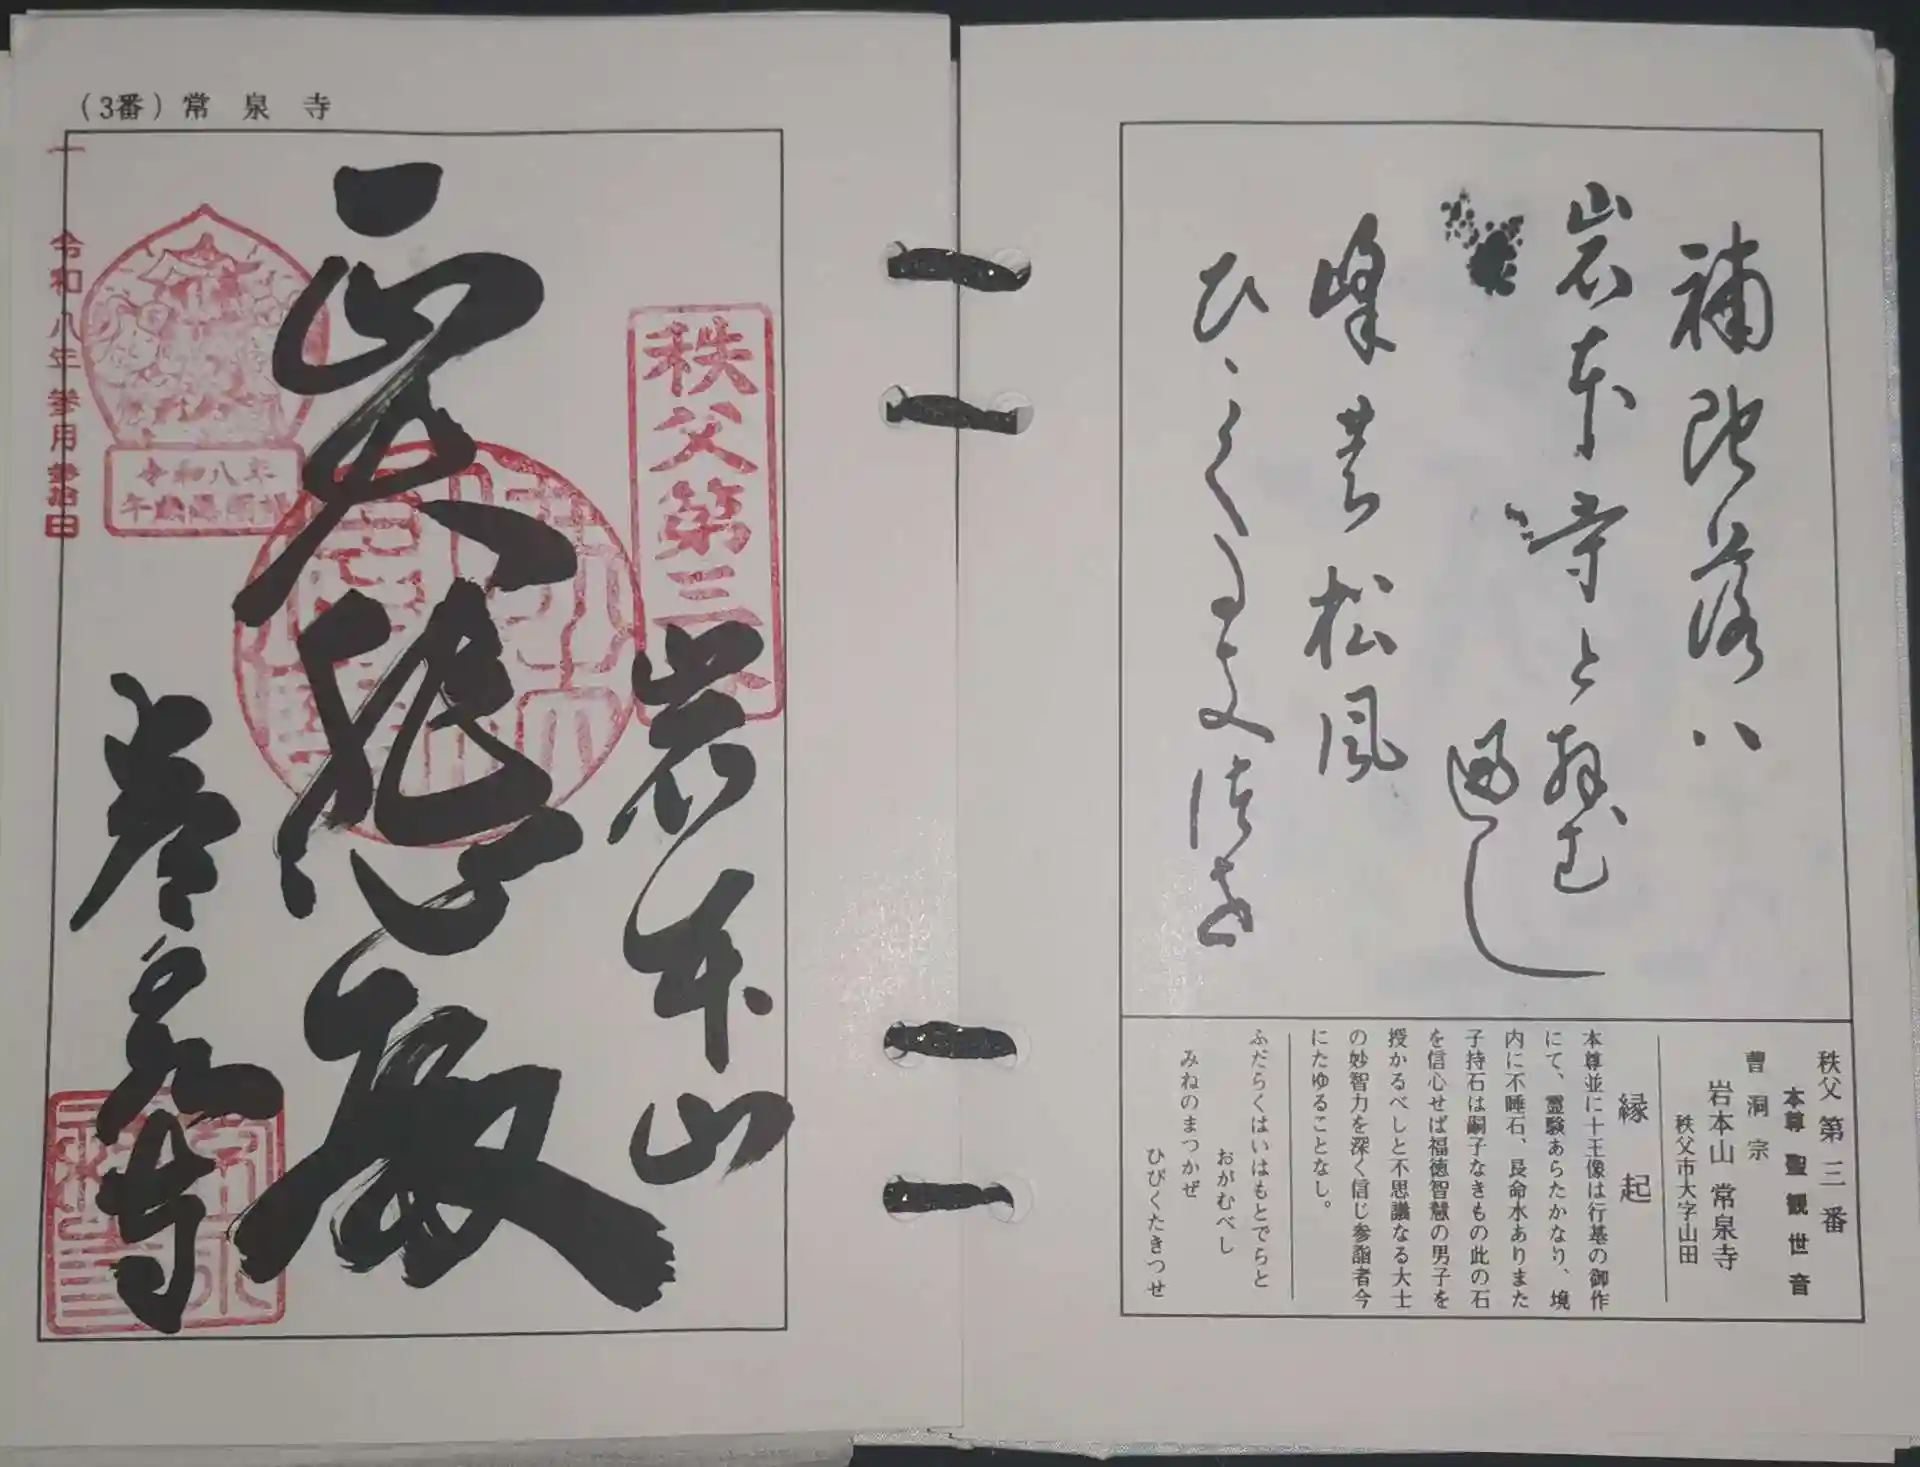 (3番) 常泉寺
秩父第三
岩本山
正大悲殿
常泉寺
令和八年
午歳総開帳
令和八年参月参拾日
補陀落八
岩本寺と拝む
遍し
峯の松風
ひゞくたきつせ
秩父第三番
本尊 聖観世音
曹洞宗
岩本山 常泉寺
秩父市大字山田
縁起
本尊並に十王像は行基の御作
にて、霊験あらたかなり、境
内に不睡石、長命水ありまた
子持石は嗣子なきもの此の石
を信心せば福徳智慧の男子を
授かるべしと不思議なる大士
の妙智力を深く信じ参詣者今
にたゆることなし。
ふだらくはいはもとでらと
おがむべし
みねのまつかぜ
ひびくたきつせ